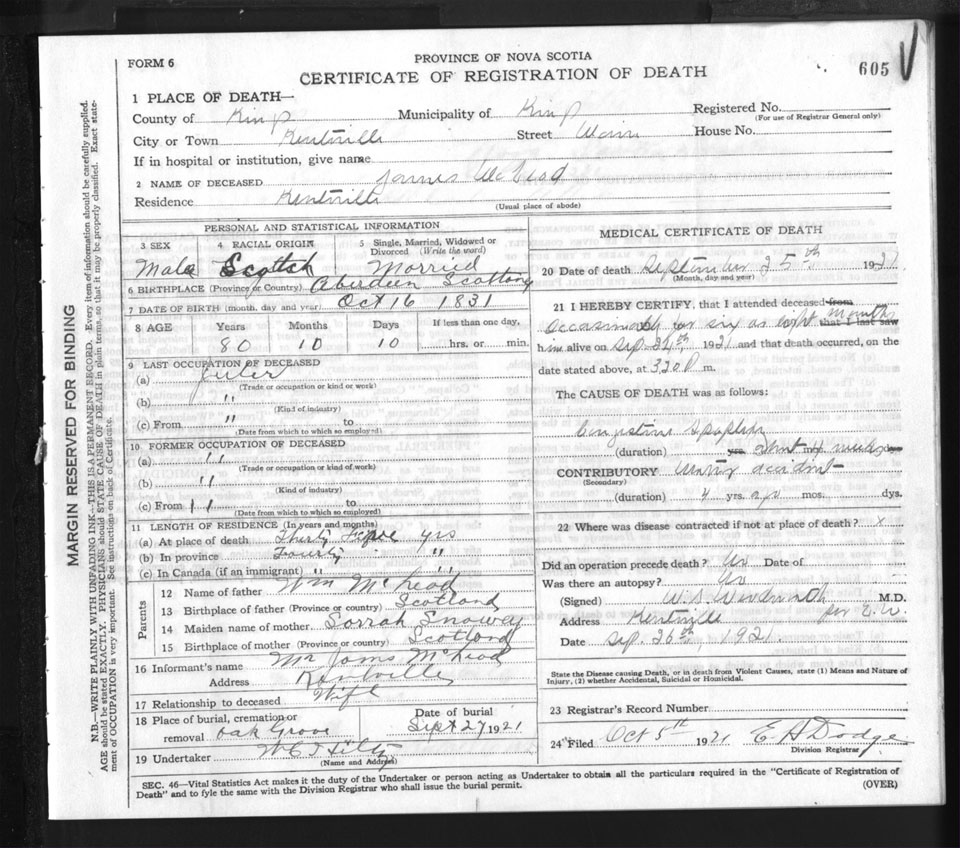 FORM 6
PROVINCE OF NOVA SCOTIA
CERTIFICATE OF REGISTRATION OF DEATH
605
1 PLACE OF DEATH—
County of Kings Municipality of Kings Registered No.
(For use of Registrar General only)
City or Town Kentville Street Main House No.
If in hospital or institution, give name
2 NAME OF DECEASED James McLeod
Residence Kentville
(Usual place of abode)
PERSONAL AND STATISTICAL INFORMATION
3 SEX 4 RACIAL ORIGIN 5 Single, Married, Widowed or Divorced (Write the word)
Male Scottish Married
6 BIRTHPLACE (Province or Country) Aberdeen Scotland
7 DATE OF BIRTH (month, day and year) Oct 16 1831
8 AGE Years Months Days If less than one day,
80 10 10 ......hrs. or ......min.
9 LAST OCCUPATION OF DECEASED
(a)
(Trade or occupation or kind or work)
(b) "
(Kind of industry)
(c) From " to
(Date from which to which so employed)
10 FORMER OCCUPATION OF DECEASED
(a) "
(Trade or occupation or kind of work)
(b) "
(Kind of industry)
(c) From " to
(Date from which to which so employed)
11 LENGTH OF RESIDENCE (In years and months)
(a) At place of death Thirty yrs
(b) In province "
(c) In Canada (if an immigrant) " "
Parents
12 Name of father Wm McLeod
13 Birthplace of father (Province or country) Scotland
14 Maiden name of mother Sarrah
15 Birthplace of mother (Province or country) Scotland
16 Informant's name Mr James McLeod
Address Kentville
17 Relationship to deceased Wife
18 Place of burial, cremation or removal Oak Grove
Date of burial Sept 27 1921
19 Undertaker
(Name and Address)
MEDICAL CERTIFICATE OF DEATH
20 Date of death September 25th 1921
(Month, day and year)
21 I HEREBY CERTIFY, that I attended deceased from
Occasionally for six or eight months that I last saw
him alive on Sep. 1921 and that death occurred, on the
date stated above, at 3 20 P m.
The CAUSE OF DEATH was as follows:
(duration) yrs. mos. ds.
CONTRIBUTORY
(Secondary)
(duration) yrs. mos. dys.
22 Where was disease contracted if not at place of death? x
Did an operation precede death? No Date of
Was there an autopsy? No
(Signed) M.D.
Address Kentville
Date Sep. 26th, 1921
State the Disease causing Death, or in death from Violent Causes, state (1) Means and Nature of Injury, (2) whether Accidental, Suicidal or Homicidal.
23 Registrar's Record Number
24 Filed Oct 5th 1921 E A Dodge
Division Registrar
SEC. 46—Vital Statistics Act makes it the duty of the Undertaker or person acting as Undertaker to obtain all the particulars required in the "Certificate of Registration of
Death" and to fyle the same with the Division Registrar who shall issue the burial permit.
(OVER)
MARGIN RESERVED FOR BINDING
N.B.—WRITE PLAINLY WITH UNFADING INK—THIS IS A PERMANENT RECORD. Every item of information should be carefully supplied.
AGE should be stated EXACTLY. PHYSICIANS should STATE CAUSE OF DEATH in plain terms, so that it may be properly classified. Exact state-
ment of OCCUPATION is very important. See instructions on back of Certificate.